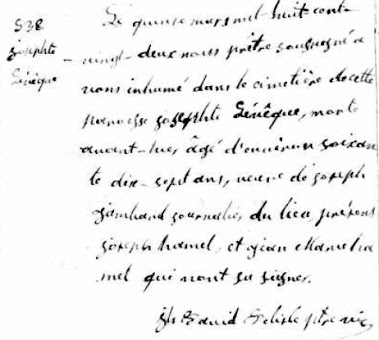 S38
josephte
Lévêque
Le quinse mars mil-huit cent-
vingt-deux nous prêtre soussigné a
vons inhumé dans le cimetière de cette
paroisse josephte Lévêque, morte
avant-hier âgé d'environ soixan
te dix-sept ans, veuve de joseph
journalier du lieu, présens
joseph hamel, et jean ha
mel qui n'ont su signer.
David Delisle ptre vic,